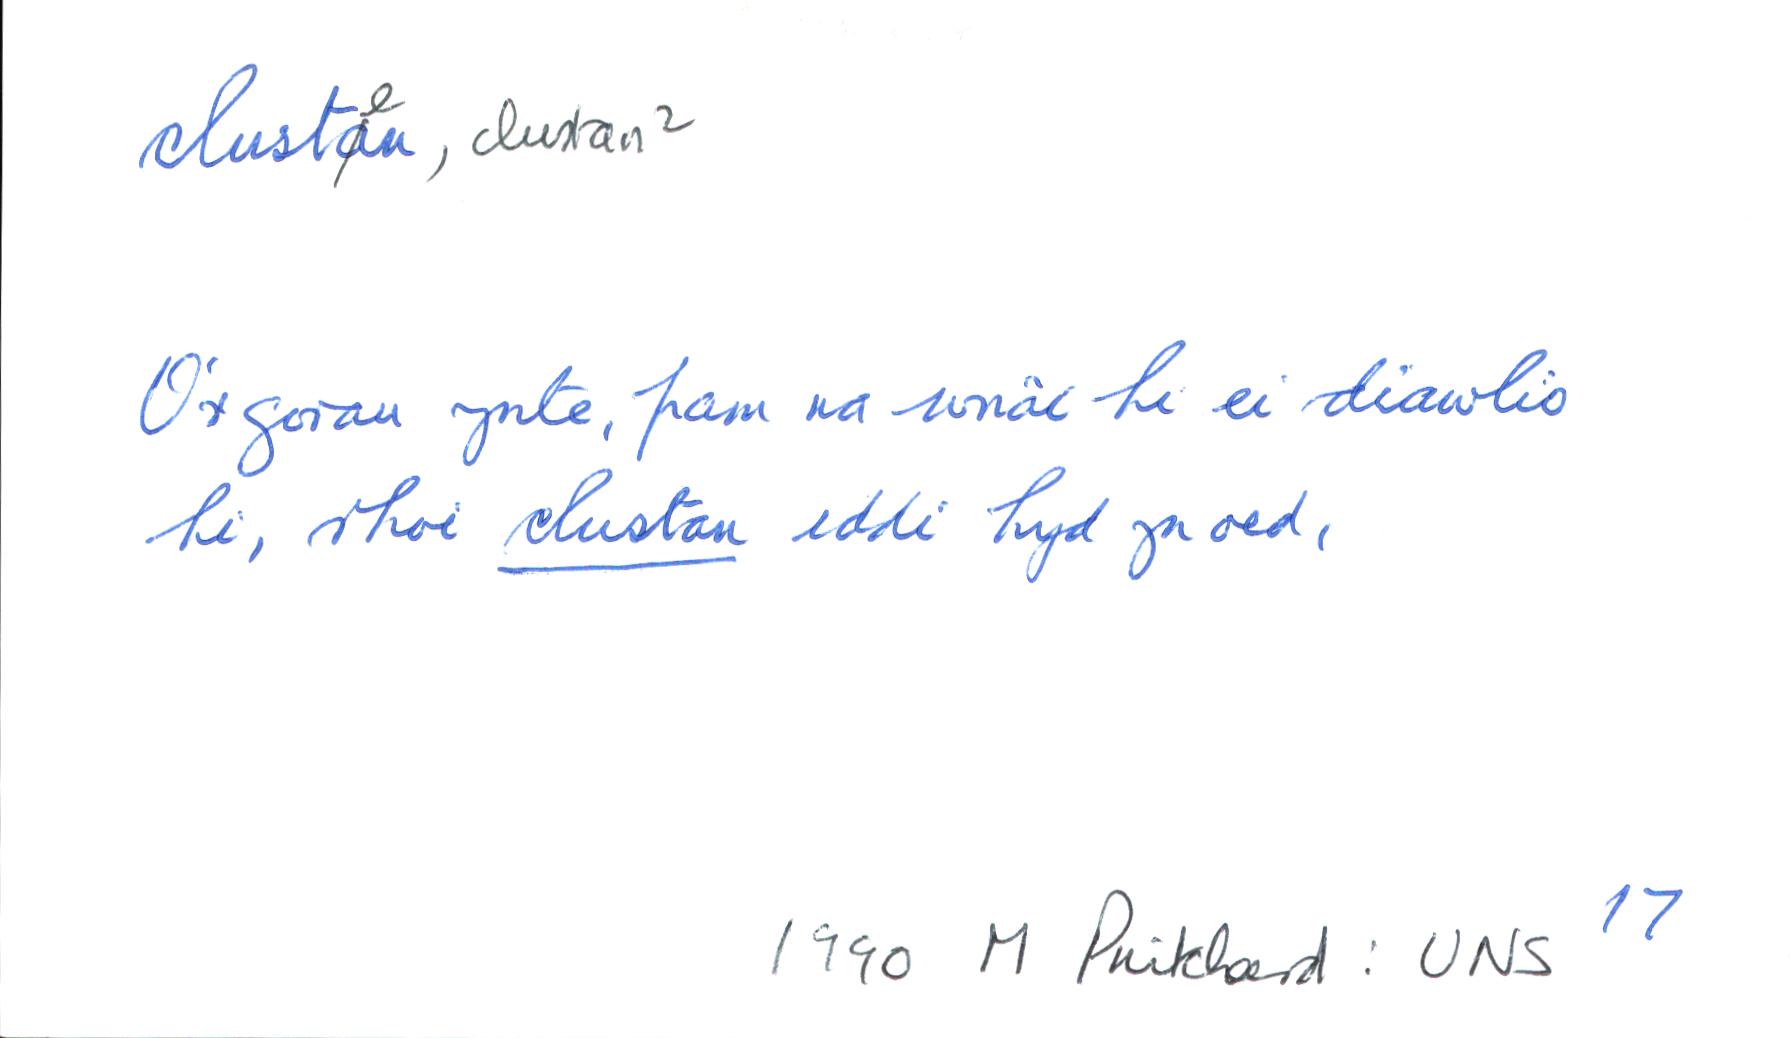 clusten, clustan²
O'r gorau ynte, pam na wnâi hi ei diawlio
hi, rhoi clustan iddi hyd yn oed,
1990 M Pritchard: UNS 17